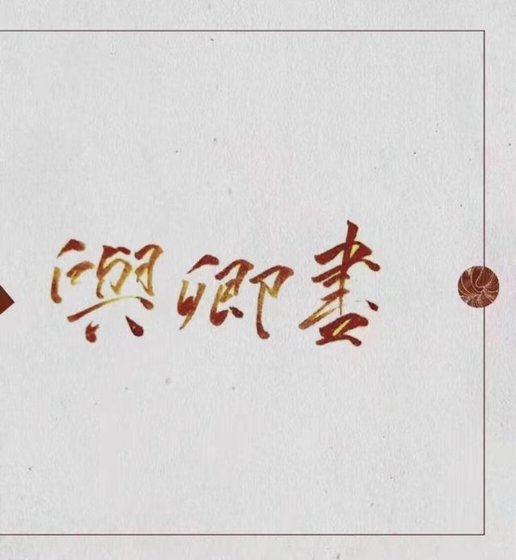 與卿書